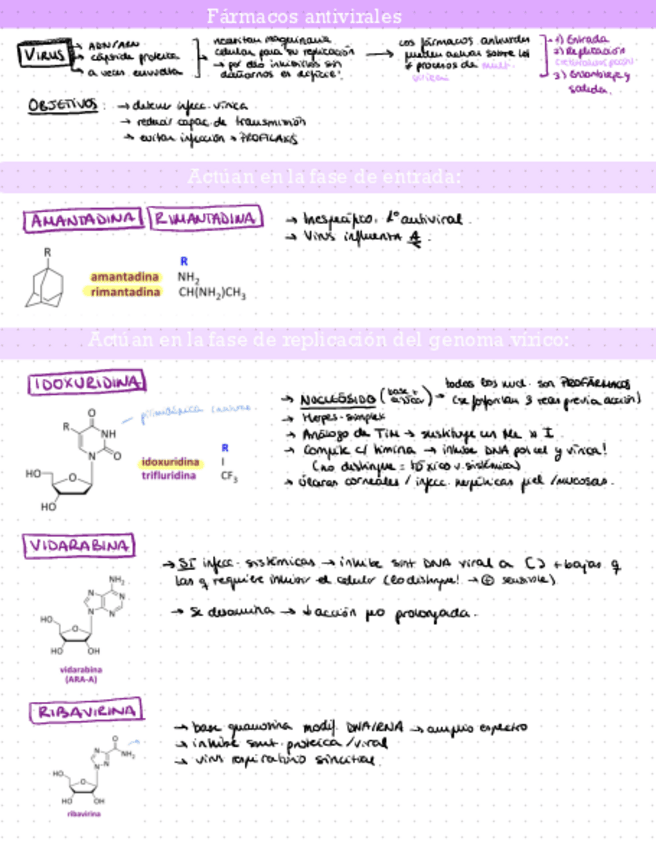 Fármacos antivirales
VIRUS → ADN/ARN
→ cápside proteica
→ a veces envuelta
necesitan maquinaria
celular para su replicación
→ por ello inhibirlos sin
dañarnos es difícil!
→ Los fármacos antivirales
pueden actuar sobre los
≠ procesos de mult.
1) Entrada
2) Replicación
3) Ensamblaje y
salida.
OBJETIVOS: → detener infecc. vírica
→ reducir capac. de transmisión
→ evitar infección → PROFILAXIS
Actúan en la fase de entrada:
AMANTADINA RIMANTADINA
→ Inespecífico. 1º antiviral.
→ Virus influenza A.
R
R
amantadina NH2
rimantadina CH(NH2)CH3
Actúan en la fase de replicación del genoma vírico:
IDOXURIDINA
→ NUCLEÓSIDO (base + azúcar) → todos los nucl. son PROFÁRMACOS
(se fosforilan 3 veces previa acción)
→ Herpes-simplex
→ Análogo de Tim → sustituye un Me x I.
→ Compite c/ timina → inhibe DNA pol cel y vírica!
(no distingue = tóxico v. sistémica)
→ úlceras corneales / infecc. herpéticas piel / mucosas.
O
R
NH
N
O
HO
O
HO
R
idoxuridina I
trifluridina CF3
VIDARABINA
→ SÍ infecc. sistémicas → inhibe sínt DNA viral a [ ] + bajas q
las q requiere inhibir el celular (lo distingue! → ⊕ sensible)
→ Se desamina → ↓ acción no prolongada.
NH2
N
N
N
N
HO
O
HO
OH
vidarabina
(ARA-A)
RIBAVIRINA
→ base guanosina modif. DNA/RNA → amplio espectro
→ inhibe sínt. proteica / viral
→ virus respiratorio sincitial.
O
NH2
N
N
N
HO
O
HO
OH
ribavirina